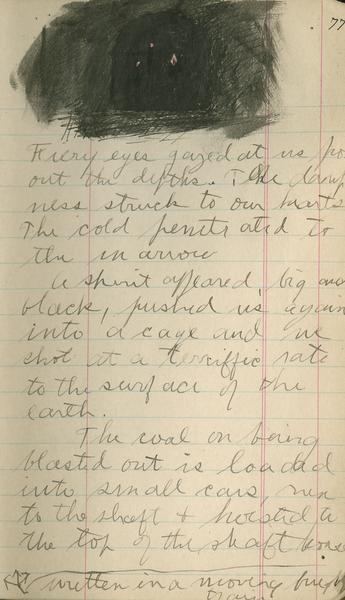 77
Fiery eyes gazed at us
out the depths. The dark
ness struck to our hearts
The cold penetrated to
the marrow
A spirit appeared, big and
black, pushed us again
into a cage and we
shot at a terriffic rate
to the surface of the
earth.
The coal on being
blasted out is loaded
into small cars, run
to the shaft & hoisted to
the top of the shaft house
written in a moving freight
train